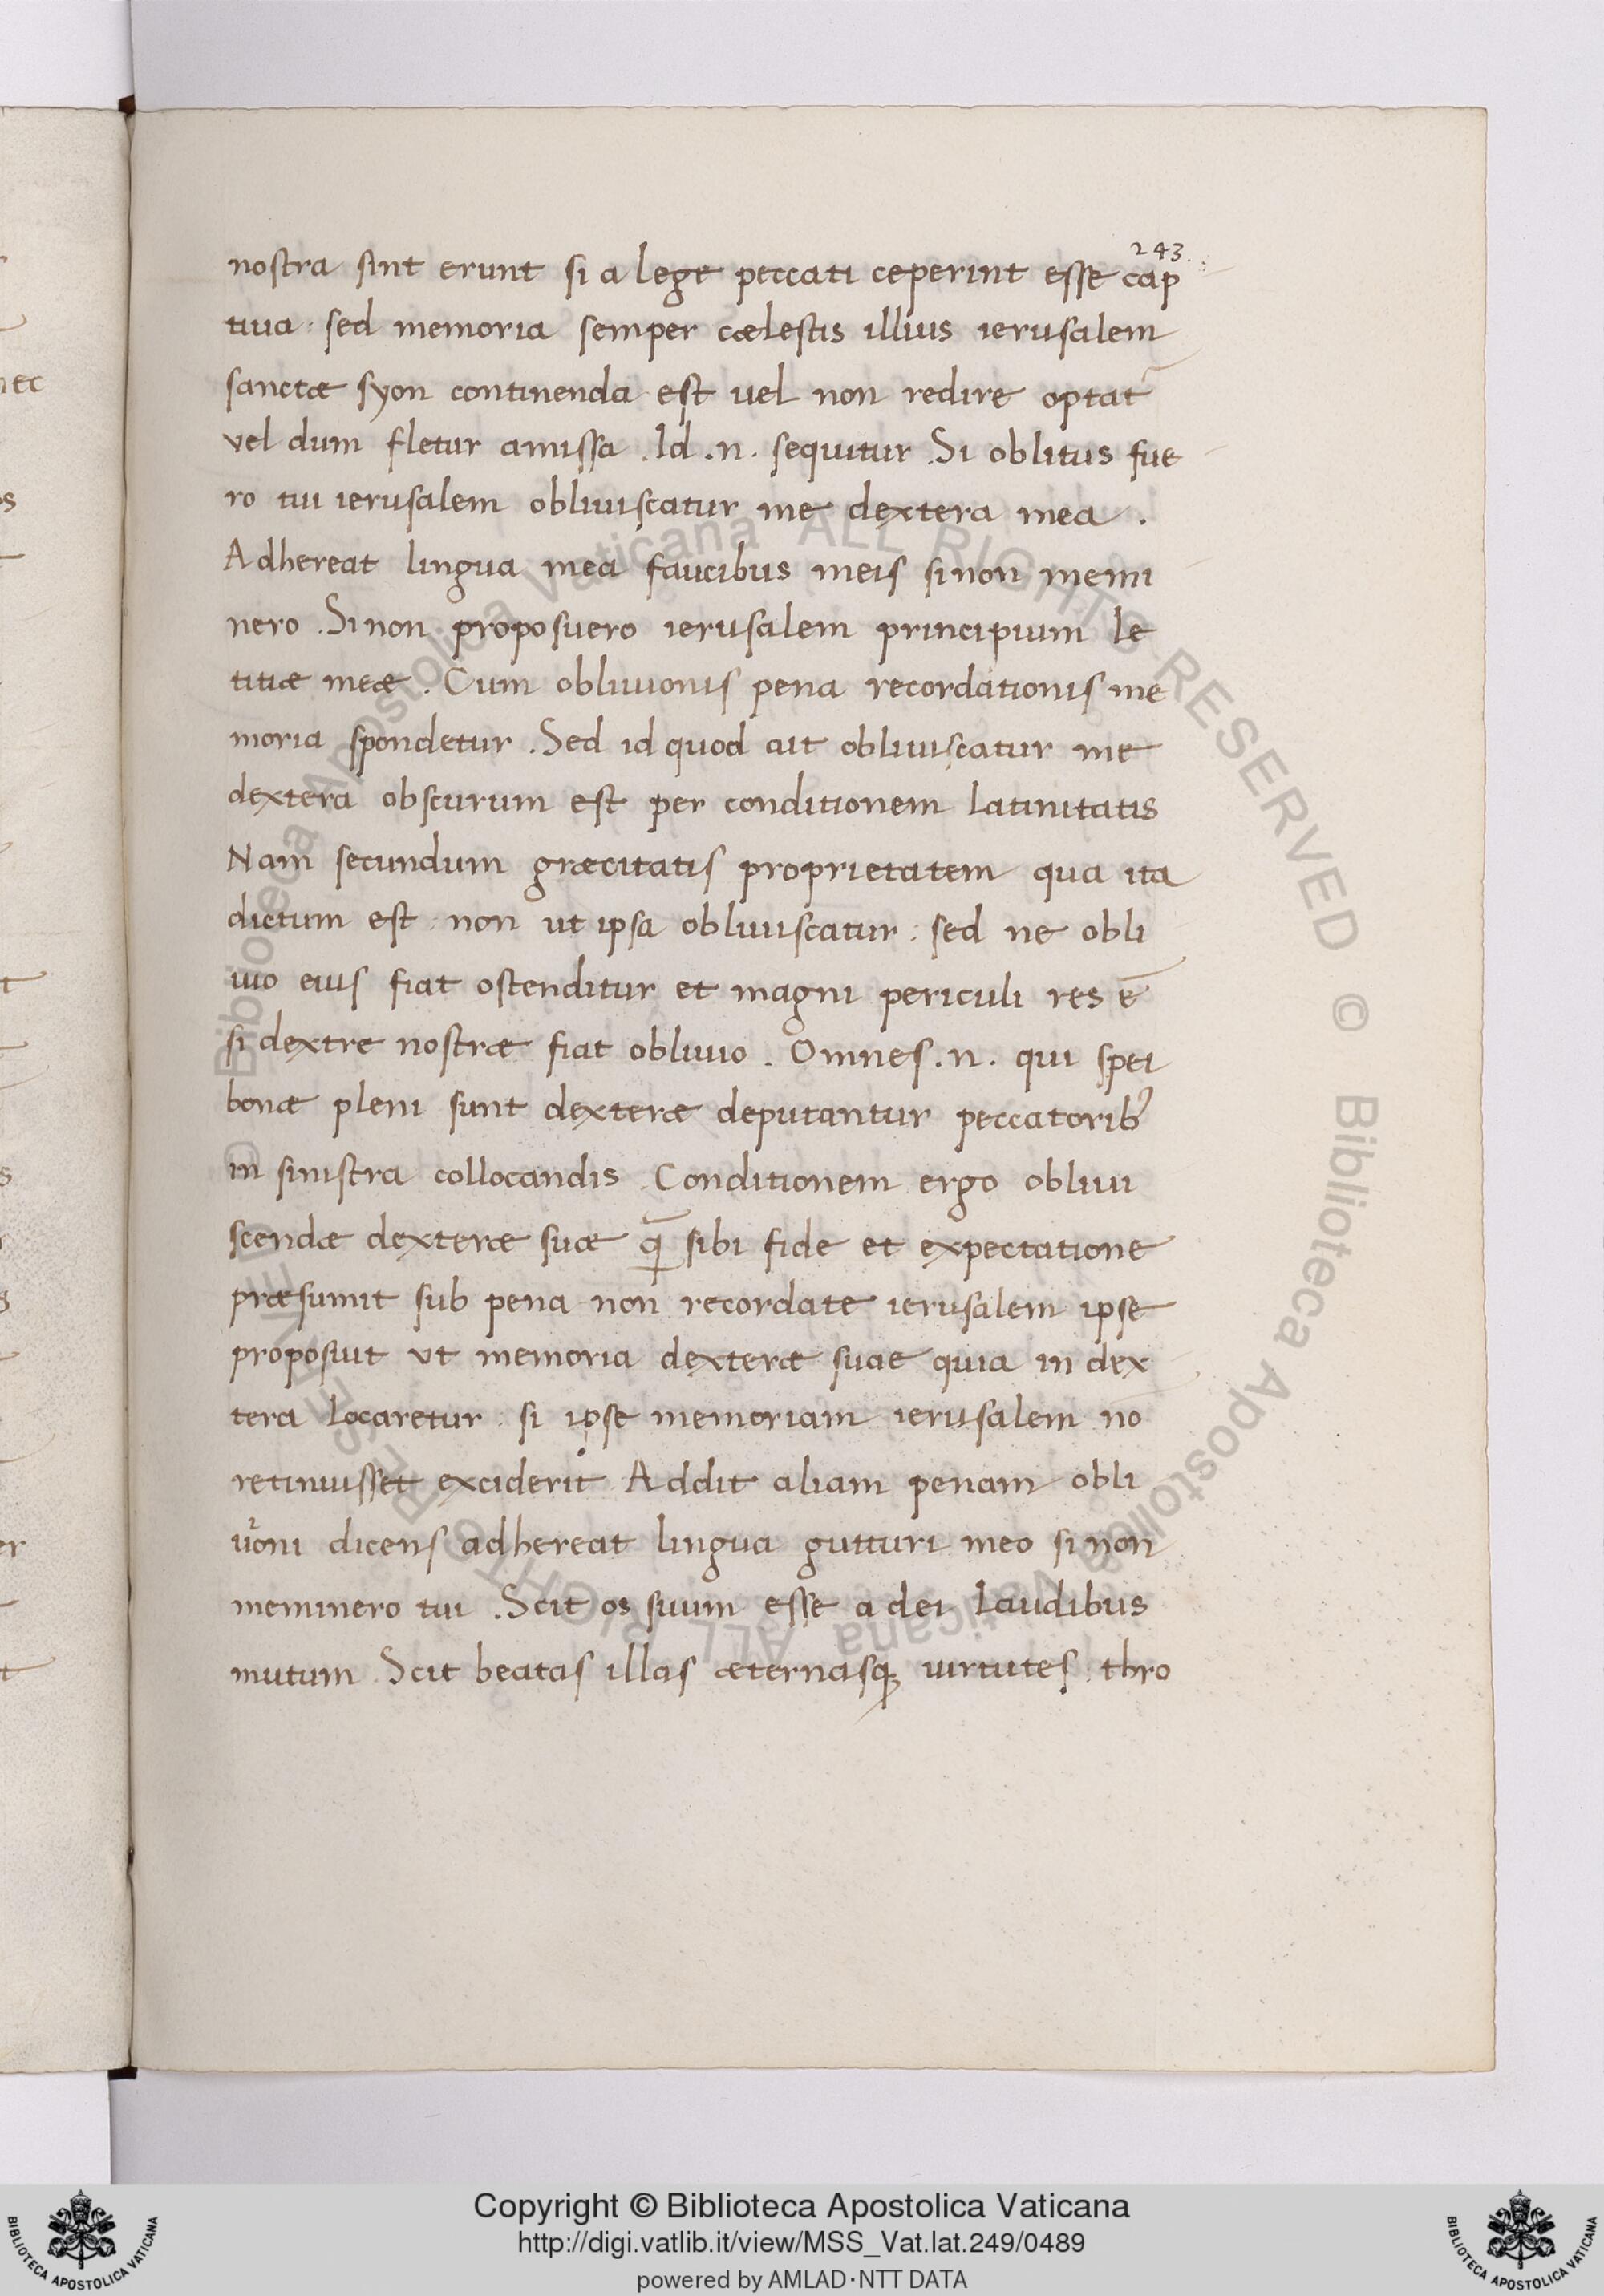 243.
nostra sint erunt si a lege peccati ceperint esse cap
tiua : sed memoria semper cælestis illius ierusalem
sanctæ syon continenda est uel non redire optat̄
vel dum fletur amissa . Id .n. sequitur . Si oblitus fue
ro tui ierusalem obliuiscatur me dextera mea .
Adhereat lingua mea faucibus meis si non memi
nero . Si non proposuero ierusalem principium le
titiæ meæ . Cum obliuionis pena recordationis me
moria spondetur . Sed id quod ait obliuiscatur me
dextera obscurum est per conditionem latinitatis
Nam secundum græcitatis proprietatem qua ita
dictum est : non ut ipsa obliuiscatur : sed ne obli
uio eius fiat ostenditur et magni periculi res ē
si dextre nostræ fiat obliuio . Omnes .n. qui spei
bonæ pleni sunt dexteræ deputantur peccatorib᾽
in sinistra collocandis . Conditionem ergo obliui
scendæ dexteræ suæ q̄ sibi fide et expectatione
præsumit sub pena non recordate ierusalem ipse
proposuit vt memoria dexteræ suae quia in dex
tera locaretur : si ipse memoriam ierusalem nō
retinuisset exciderit Addit aliam penam obli
uioni dicens adhereat lingua gutturi meo si non
meminero tui . Scit os suum esse a dei laudibus
mutum . Scit beatas illas æternasq; uirtutes : thro
Copyright © Biblioteca Apostolica Vaticana
http://digi.vatlib.it/view/MSS_Vat.lat.249/0489
powered by AMLAD·NTT DATA
BIBLIOTECA APOSTOLICA VATICANA
BIBLIOTECA APOSTOLICA VATICANA
© Biblioteca Apostolica Vaticana ALL RIGHTS RESERVED © Biblioteca Apostolica Vaticana ALL RIGHTS RESERVED